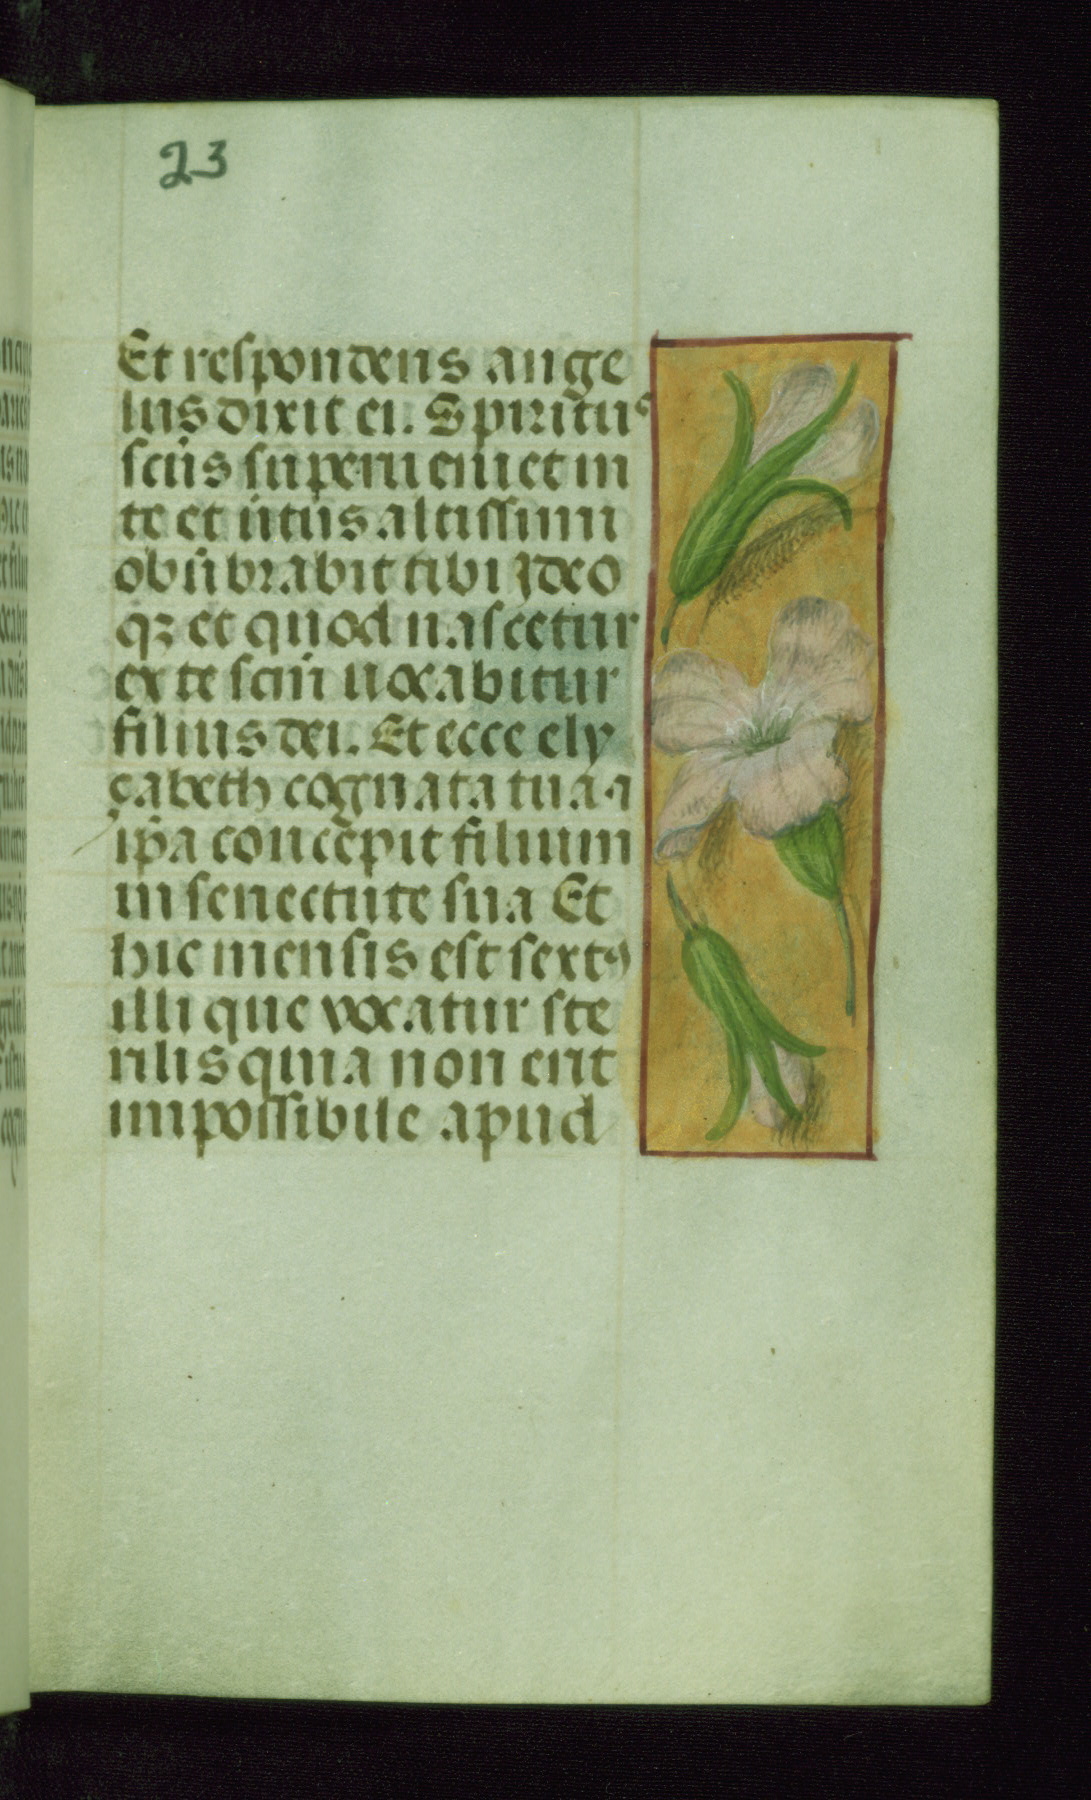 23
Et respondens ange
lus dixit ei. Spiritus
scūs superueniet in
te et ūtus altissimi
obūbrabit tibi Ideo
qz et quod nascetur
ex te scm̄ uocabitur
filius dei. Et ecce ely
çabeth cognata tua
ip̄a concepit filium
in senectute sua Et
hic mensis est sextꝰ
illi que vocatur ste
rilis quia non erit
impossibile apud